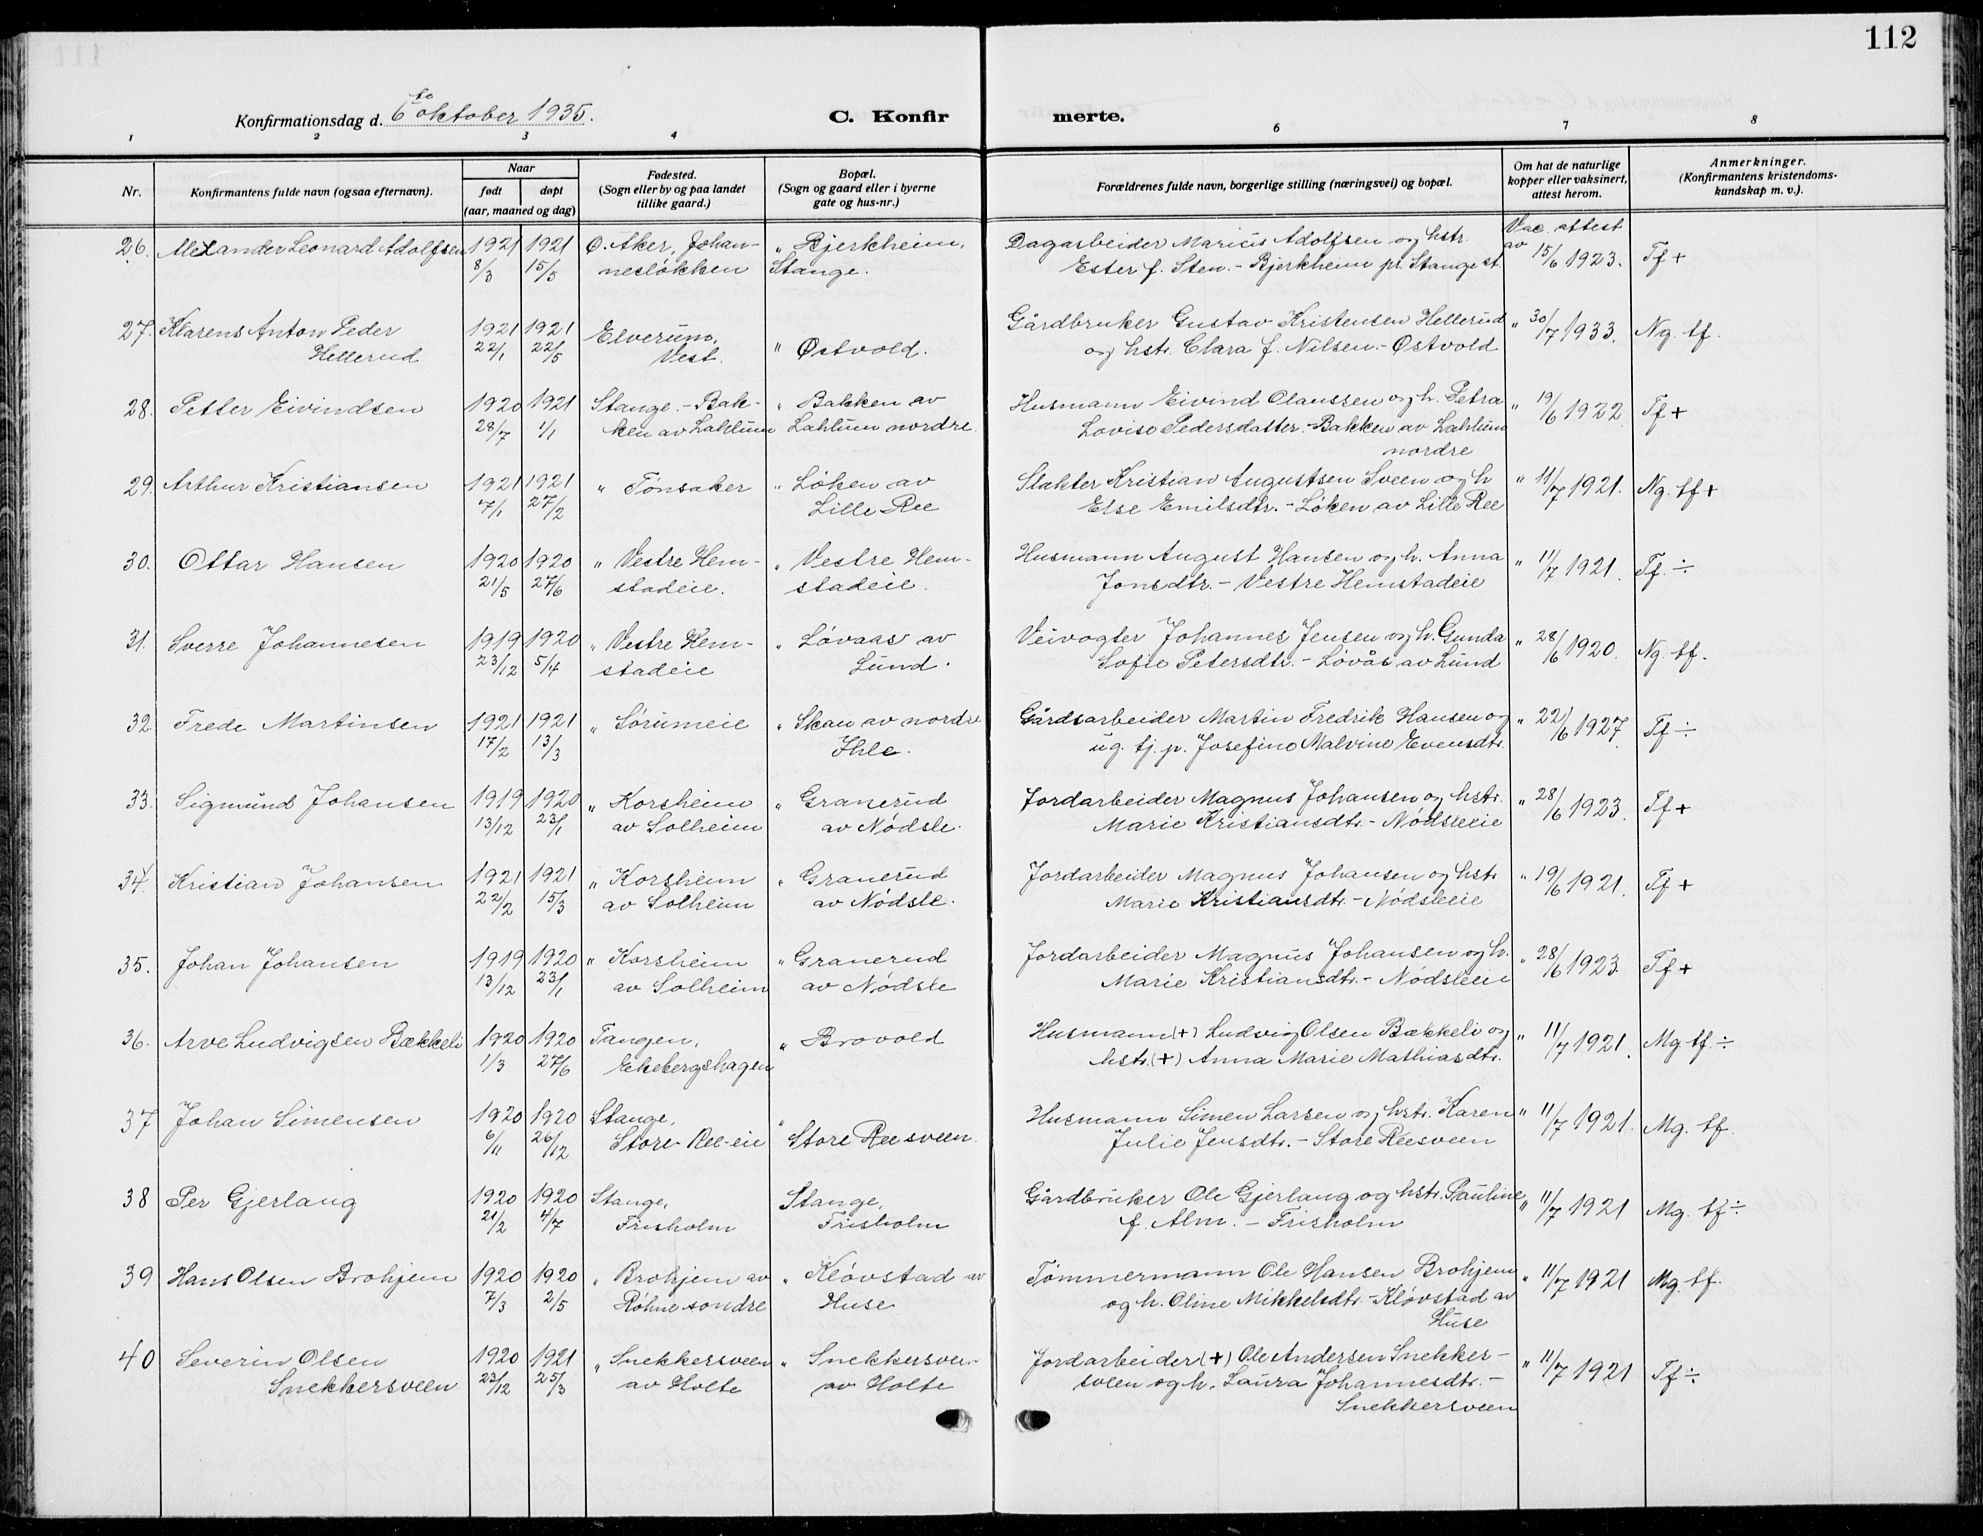 112
Konfirmationsdag d. 6te oktober 1935.
C. Konfirmerte.
1 2 3 4 6 7 8
Nr.
Konfirmantens fulde navn (ogsaa efternavn).
Naar
født døpt
(aar, maaned og dag)
Fødested.
(Sogn eller by og paa landet
tillike gaard.)
Bopæl.
(Sogn og gaard eller i byerne
gate og hus-nr.)
Forældrenes fulde navn, borgerlige stilling (næringsvei) og bopæl.
Om hat de naturlige
kopper eller vaksinert,
attest herom.
Anmerkninger.
(Konfirmantens kristendoms-
kundskap m. v.).
26. Alexander Leonard Adolfsen 1921 1921 Ø. Aker, Johan- " Bjerkheim, Dagarbeider Marius Adolfsen og hstr. Vac. attest av
8/3 15/5 nesløkken Stange. Ester f. Sten. - Bjerkheim pr. Stange st. 15/6 1923. Tf +
27. Klarens Anton Peder 1921 1921 Elverum, Gårdbruker Gustav Kristensen Hellerud " 30/7 1933. Ng. tf.
Hellerud 22/1 22/5 Vest. " Østvold. og hstr. Clara f. Nilsen. - Østvold
28. Petter Eivindsen 1920 1921 Stange. - Bak- " Bakken av Husmann Eivind Olaussen og h. Petra " 19/6 1922 Tf +
28/7 1/1 ken av Lahlum Lahlum nordre. Lovise Pedersdatter. - Bakken av Lahlum
nordre
29. Arthur Kristiansen 1921 1921 " Tønsaker " Løken av Slakter Kristian Augustsen Sveen og h " 11/7 1921. Ng. tf +
7/1 27/2 Lille Ree Else Emilsdtr. - Løken av Lille Ree
30. Ottar Hansen 1920 1920 " Vestre Hem- " Vestre Hem- Husmann August Hansen og h. Anna " 11/7 1921. Tf. ÷
21/5 27/6 stadeie. stadeie. Jonsdtr. - Vestre Hemstadeie
31. Sverre Johannesen 1919 1920 " Vestre Hem- " Løvaas av Veivogter Johannes Jensen og h. Gunda " 28/6 1920. Ng. tf.
23/12 5/4 stadeie Lund. Sofie Petersdtr. - Løvås av Lund
32. Frede Martinsen 1921 1921 " Sørumeie " Skau av nordre Gårdsarbeider Martin Fredrik Hansen og " 22/6 1927. Tf ÷
17/2 13/3 Ihle. ug. tj. p. Josefine Malvine Evensdtr.
33. Sigmund Johansen 1919 1920 " Korsheim " Granerud Jordarbeider Magnus Johansen og hstr. " 28/6 1923. Tf +
13/12 23/1 av Solheim av Nødsle. Marie Kristiansdtr. - Nødsleeie
34. Kristian Johansen 1921 1921 " Korsheim " Granerud Jordarbeider Magnus Johansen og hstr " 19/6 1921. Tf +
22/2 15/3 av Solheim av Nødsle. Marie Kristiansdtr. - Nødsleeie
35. Johan Johansen 1919 1920 " Korsheim " Granerud Jordarbeider Magnus Johansen og h. " 28/6 1923. Tf +
13/12 23/1 av Solheim av Nødsle Marie Kristiansdtr. - Nødsleeie
36. Arve Ludvigsen Bækkeli 1920 1920 Tangen, " Brovold Husmann (+) Ludvig Olsen Bækkeli og " 11/7 1921. Mg. tf. ÷
1/3 27/6 Ekebergshagen hstr. (+) Anna Marie Mathiasdtr.
37 Johan Simensen 1920 1920 Stange, " Husmann Simen Larsen og hstr. Karen " 11/7 1921. Mg. tf.
6/11 26/12 Store-Ree-eie Store Reesveen. Julie Jensdtr. - Store Reesveen
38 Per Gjerlaug 1920 1920 Stange, Stange, Gårdbruker Ole Gjerlaug og hstr. Pauline " 11/7 1921 Mg. tf ÷
21/2 4/7 Frisholm Frisholm f. Alm. - Frisholm
39 Hans Olsen Brohjem 1920 1920 " Brohjem av " Kløvstad av Tømmermann Ole Hansen Brohjem " 11/7 1921 Mg. tf.
7/3 2/5 Røhne søndre Huse og h. Oline Mikkelsdtr. - Kløvstad av
Huse
40 Severin Olsen 1920 1921 " Snekkersveen " Snekkersveen Jordarbeider (+) Ole Andersen Snekker- " 11/7 1921 Tf ÷
Snekkersveen 23/12 25/3 av Holte av Holte sveen og h. Laura Johannesdtr. -
Snekkersveen